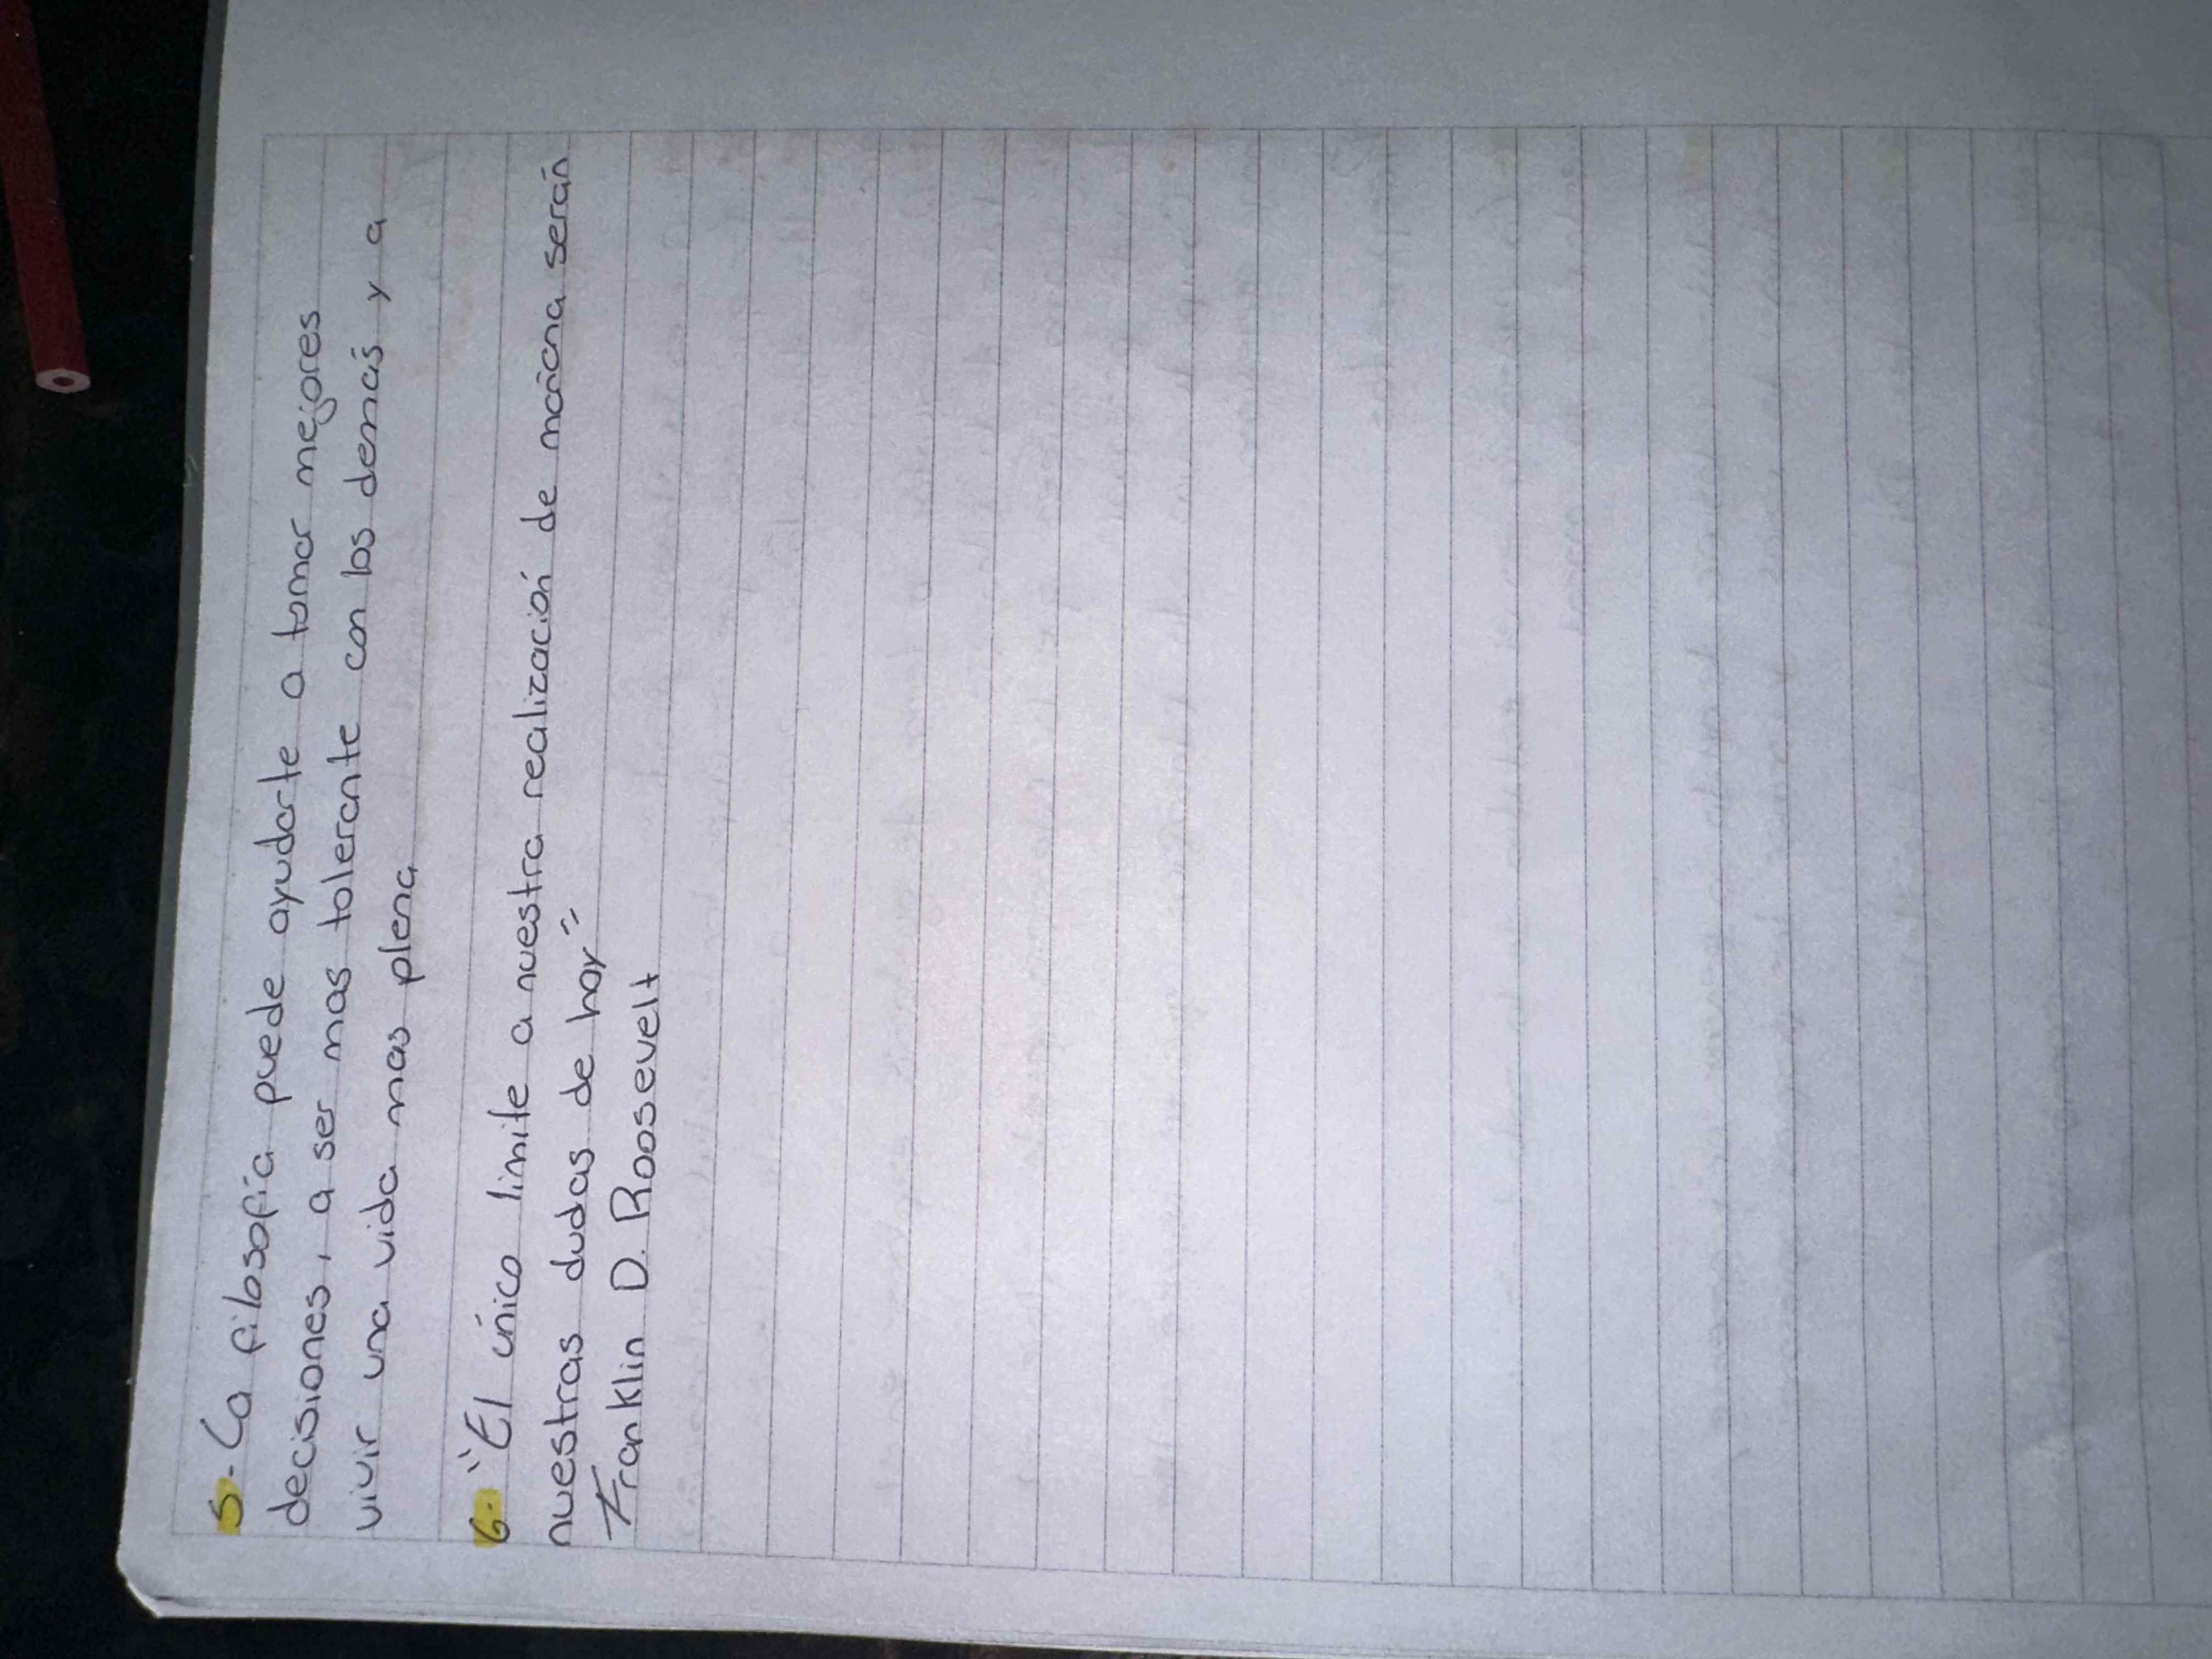 5.- La filosofía puede ayudarte a tomar mejores
decisiones, a ser mas tolerante con los demás y a
vivir una vida mas plena
6.- "El único limite a nuestra realización de mañana serán
nuestras dudas de hoy"
Franklin D. Roosevelt